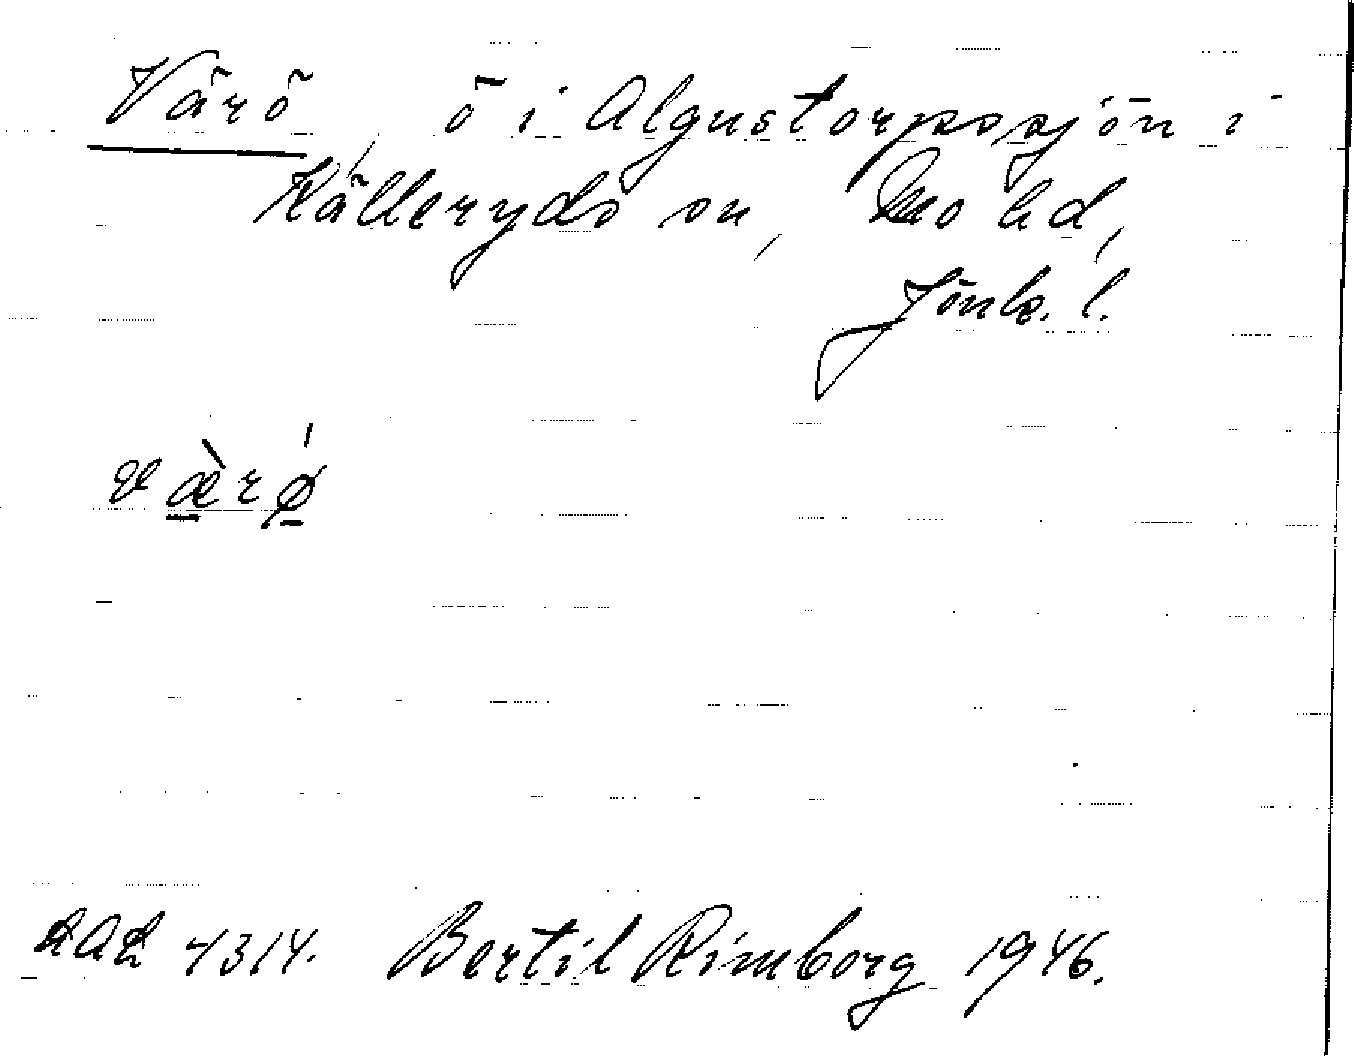 Värö, ö i Algustorpssjön i
Källeryds sn, Mo hd,
Jönk. l.
væ̀rǿ
LAL 4314. Bertil Rimborg 1946.